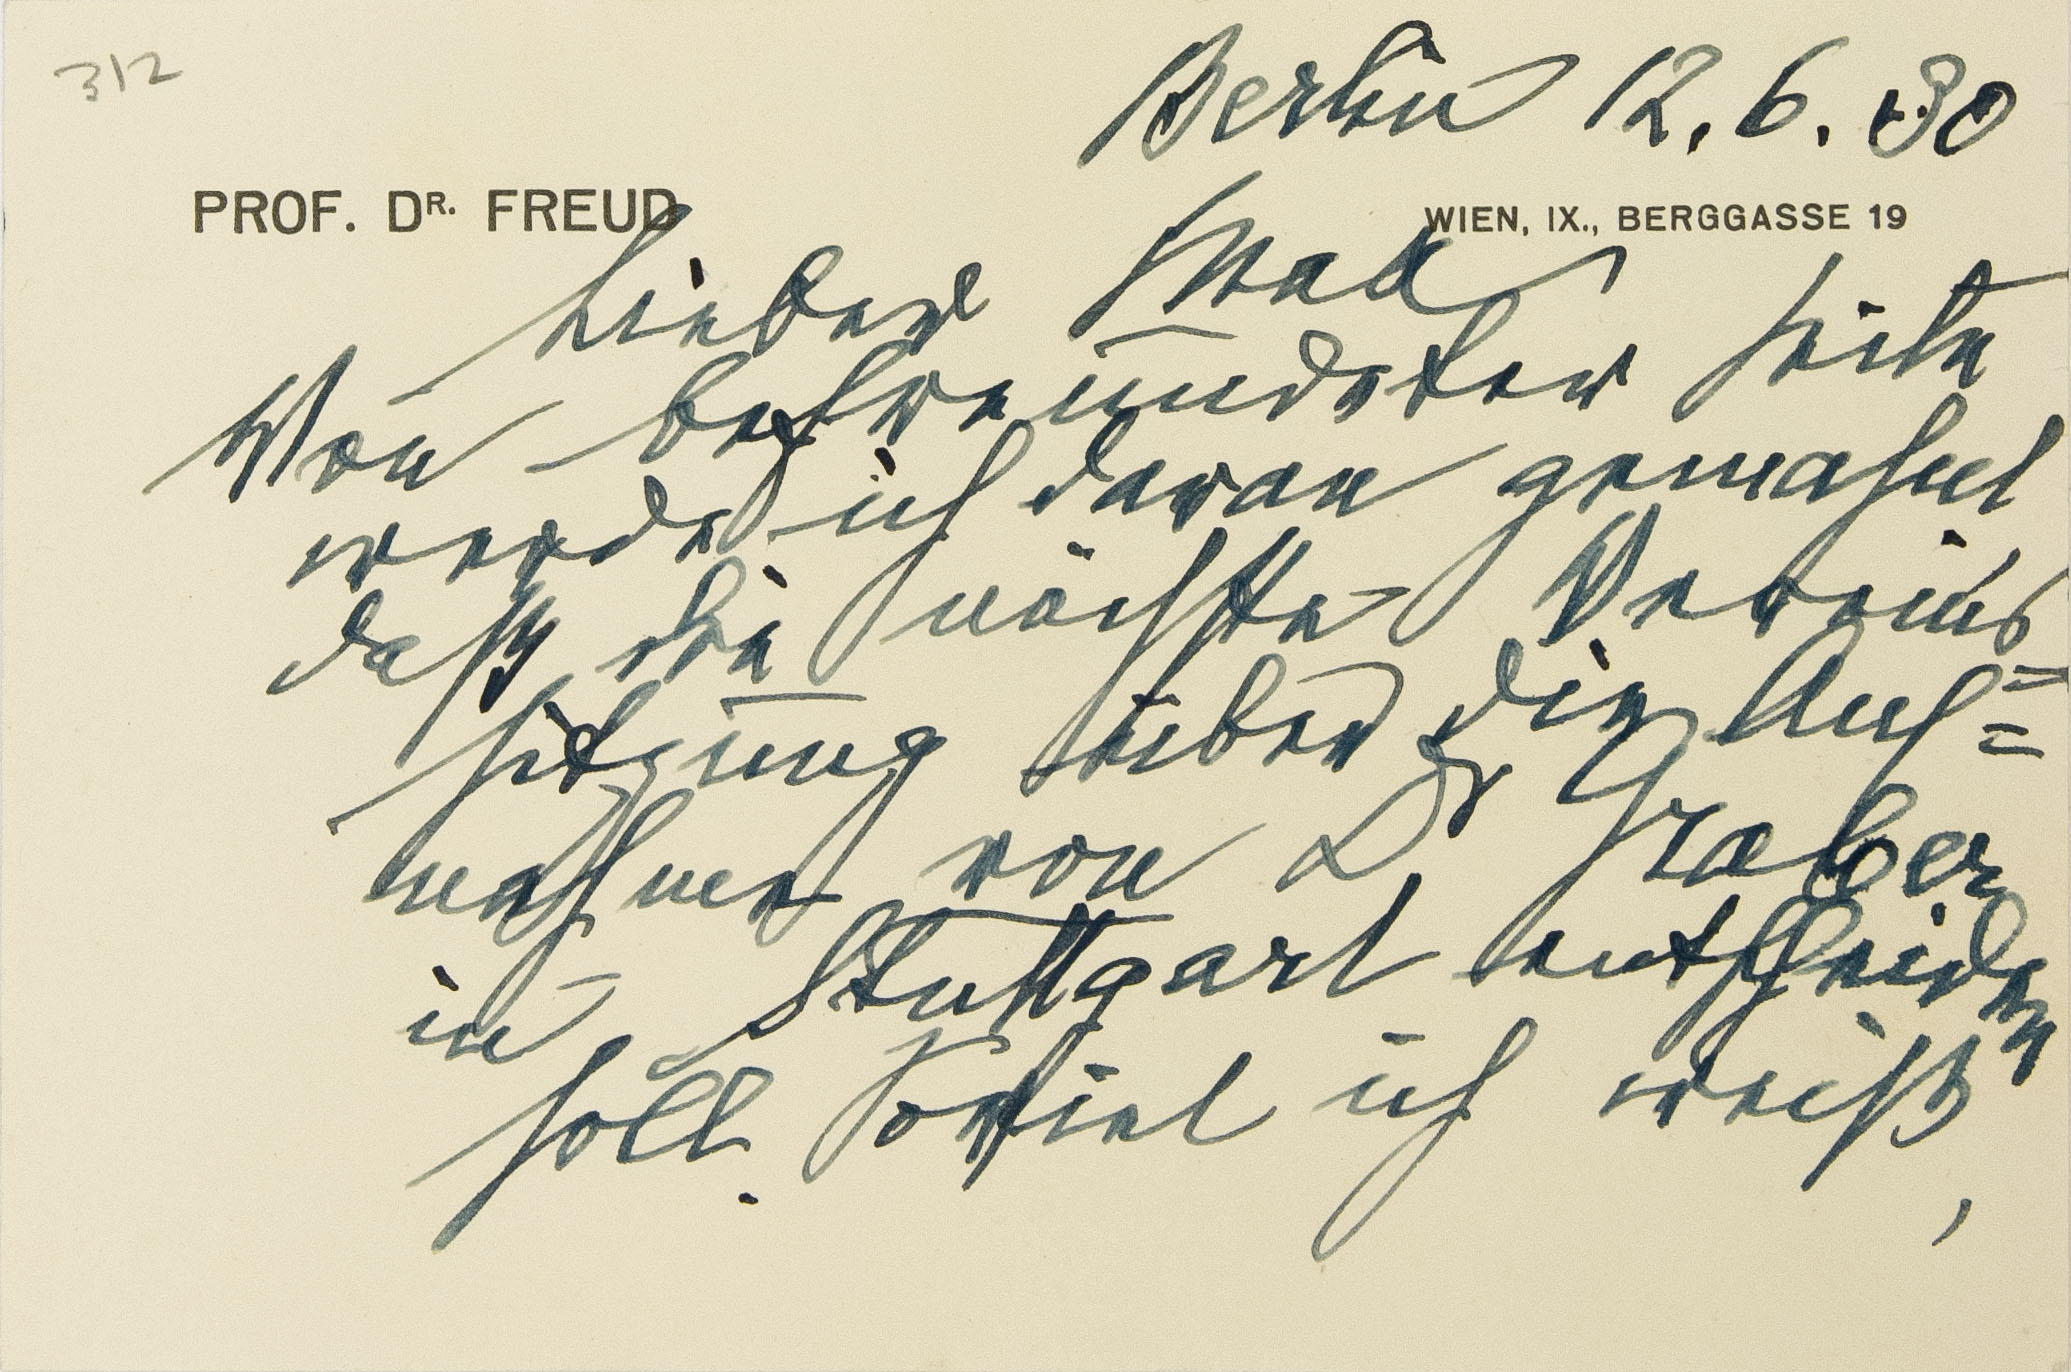 312
Berlin 12. 6. 30
PROF. DR. FREUD
WIEN, IX., BERGGASSE 19
Lieber Max
Von befreundeter Seite
werde ich daran gemahnt
daß die nächste Vereins=
sitzung über die Auf=
nahme von Dr Graber
in Stuttgart entscheiden
soll. Soviel ich weiß,